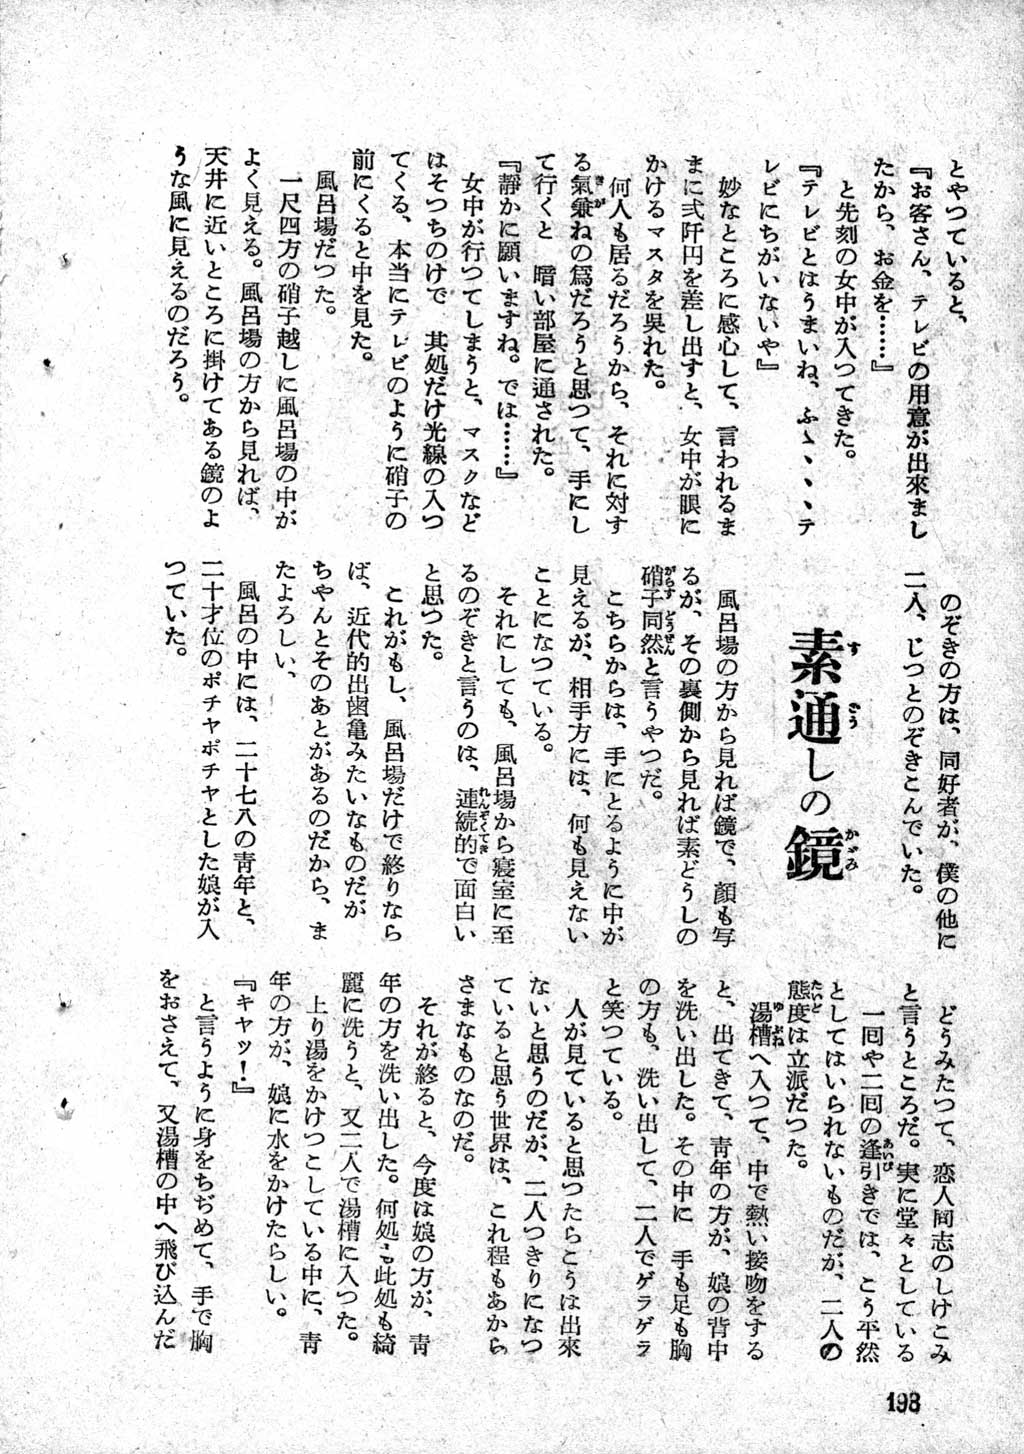 とやつていると、
『お客さん、テレビの用意が出來まし
たから、お金を……』
と先刻の女中が入つてきた。
『テレビとはうまいね、ふゝゝゝゝテ
レビにちがいないや』
妙なところに感心して、言われるま
まに弐阡円を差し出すと、女中が眼に
かけるマスタを呉れた。
何人も居るだろうから、それに対す
る氣兼ねの爲だろうと思つて、手にし
て行くと 暗い部屋に通された。
『靜かに願いますね。では……』
女中が行つてしまうと、マスクなど
はそつちのけで 其処だけ光線の入つ
てくる、本当にテレビのように硝子の
前にくると中を見た。
風呂場だつた。
一尺四方の硝子越しに風呂場の中が
よく見える。風呂場の方から見れば、
天井に近いところに掛けてある鏡のよ
うな風に見えるのだろう。
のぞきの方は、同好者が、僕の他に
二人、じつとのぞきこんでいた。
素通しの鏡
風呂場の方から見れば鏡で、顔も写
るが、その裏側から見れば素どうしの
硝子同然と言うやつだ。
こちらからは、手にとるように中が
見えるが、相手方には、何も見えない
ことになつている。
それにしても、風呂場から寝室に至
るのぞきと言うのは、連続的で面白い
と思つた。
これがもし、風呂場だけで終りなら
ば、近代的出歯亀みたいなものだが
ちやんとそのあとがあるのだから、ま
たよろしい、
風呂の中には、二十七八の靑年と、
二十才位のポチヤポチヤとした娘が入
つていた。
どうみたつて、恋人同志のしけこみ
と言うところだ。実に堂々としている
一回や二回の逢引きでは、こう平然
としてはいられないものだが、二人の
態度は立派だつた。
湯槽へ入つて、中で熱い接吻をする
と、出てきて、靑年の方が、娘の背中
を洗い出した。その中に 手も足も胸
の方も、洗い出して、二人でゲラゲラ
と笑つている。
人が見ていると思つたらこうは出來
ないと思うのだが、二人つきりになつ
ていると思う世界は、これ程もあから
さまなものなのだ。
それが終ると、今度は娘の方が、靑
年の方を洗い出した。何処も此処も綺
麗に洗うと、又二人で湯槽に入つた。
上り湯をかけつこしている中に、靑
年の方が、娘に水をかけたらしい。
『キヤッ！』
と言うように身をちぢめて、手で胸
をおさえて、又湯槽の中へ飛び込んだ
198